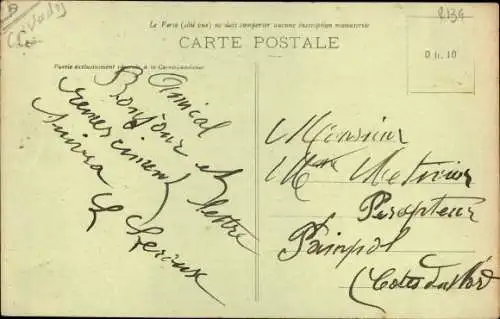 2139
Le Verso (côté vue) ne doit comporter aucune inscription manuscrite
CARTE POSTALE
Partie exclusivement réservée à la Correspondance
Amical
Bonjour et
remerciment
lettre
suivra
Leroux
Monsieur
Mme Metivier
Percepteur
Paimpol
(Cotes du Nord